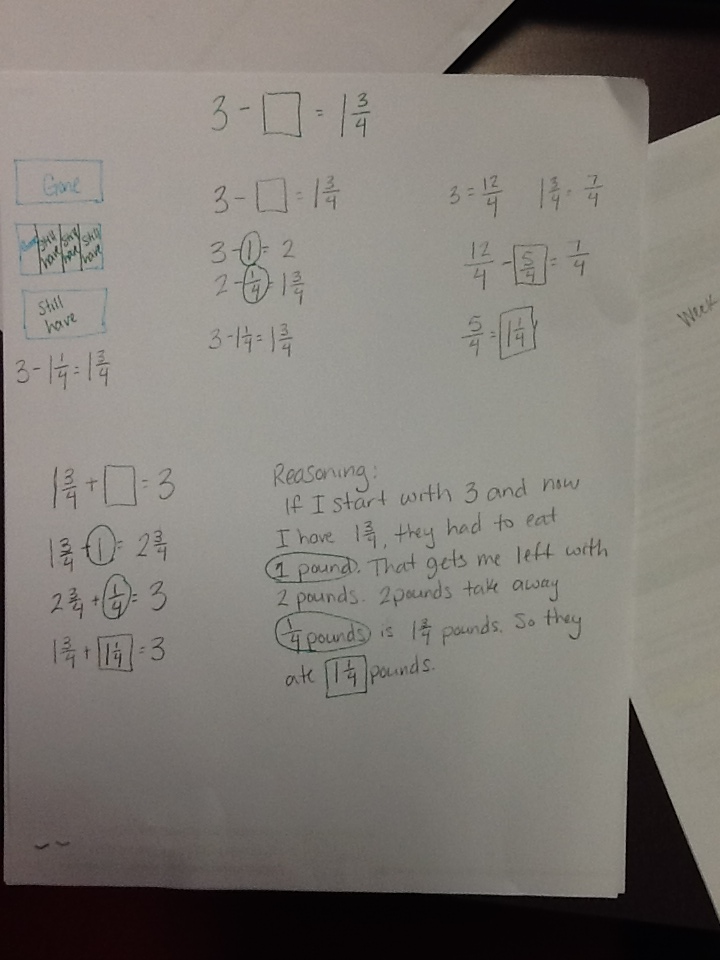 3 - □ = 1 3/4
Gone
Still have
Still have
Still have
Still have
3 - 1 1/4 = 1 3/4
3 - □ = 1 3/4
3 - 1 = 2
2 - 1/4 = 1 3/4
3 - 1 1/4 = 1 3/4
3 = 12/4 1 3/4 = 7/4
12/4 - 5/4 = 7/4
5/4 = 1 1/4
1 3/4 + □ = 3
1 3/4 + 1 = 2 3/4
2 3/4 + 1/4 = 3
1 3/4 + 1 1/4 = 3
Reasoning:
If I start with 3 and now
I have 1 3/4, they had to eat
1 pound. That gets me left with
2 pounds. 2pounds take away
1/4 pounds is 1 3/4 pounds. So they
ate 1 1/4 pounds.
Week